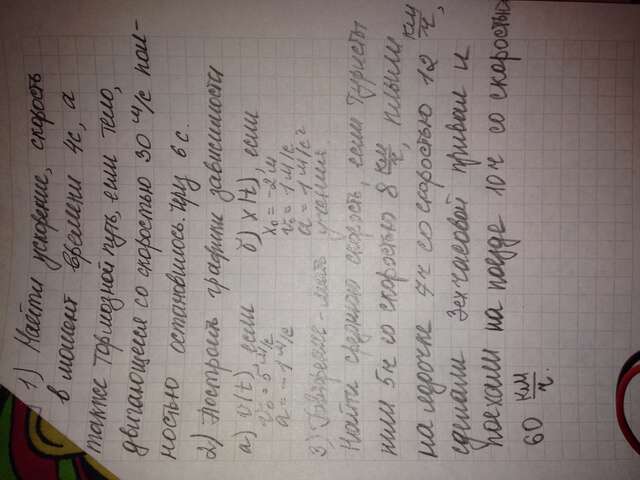 1) Найти ускорение, скорость
в момент времени 4с, а
также тормозной путь, если тело,
двигающееся со скоростью 30 м/с пол-
ностью остановилось. Чрз 6 с.
2) Построить графики зависимости
а) v(t), если б) x(t), если
v₀ = 5 м/с x₀ = -2 м
a = -1 м/с v₀ = 1 м/с
a = 1 м/с²
3) Повторение - мать учения.
Найти среднюю скорость, если туристы
шли 5ч со скоростью 8 км/ч, плыли
на лодочке 7ч со скоростью 12 км/ч,
сделали 3ехчасовой привал и
поехали на поезде 10ч со скоростью
60 км/ч.